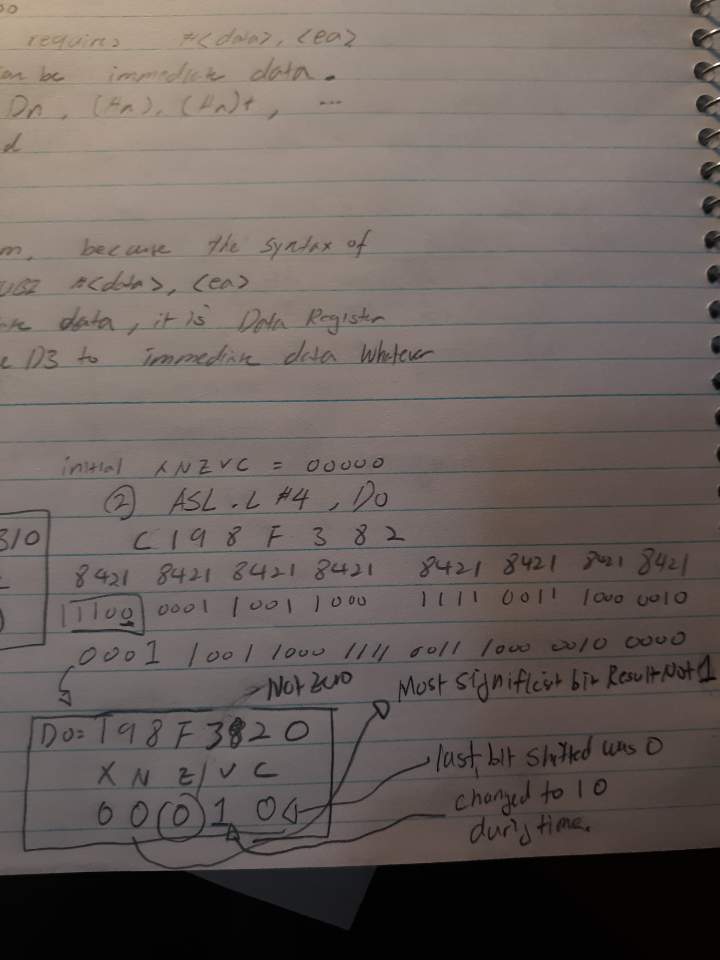 00
requires #<data>, <ea>
an be immediate data.
Dn, (An), (An)+, ...
d
m, because the syntax of
#<data>, <ea>
data, it is Data Register
D3 to immediate data whatever
initial XNZVC = 00000
② ASL.L #4, D0
310
C 1 9 8 F 3 8 2
8421 8421 8421 8421 8421 8421 8421 8421
1100 0001 1001 1000 1111 0011 1000 0010
0001 1001 1000 1111 0011 1000 0010 0000
Not Zero
Most significist bit Result Not 1
D0 = 198F3820
X N Z V C
0 0 0 1 0
last bit shifted was 0
changed to 10
during time.